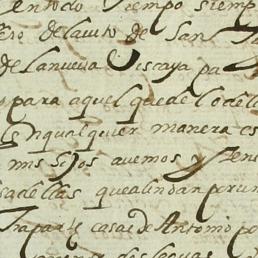 entodo tiempo siemp
ero delavito de San
de lanueva Viscaya pa
o para aquel quede lo dell
ls nqualquier manera es
mis hijos avemos y tene
sadellas quealindan porun
Trapar te casas de Antonio po